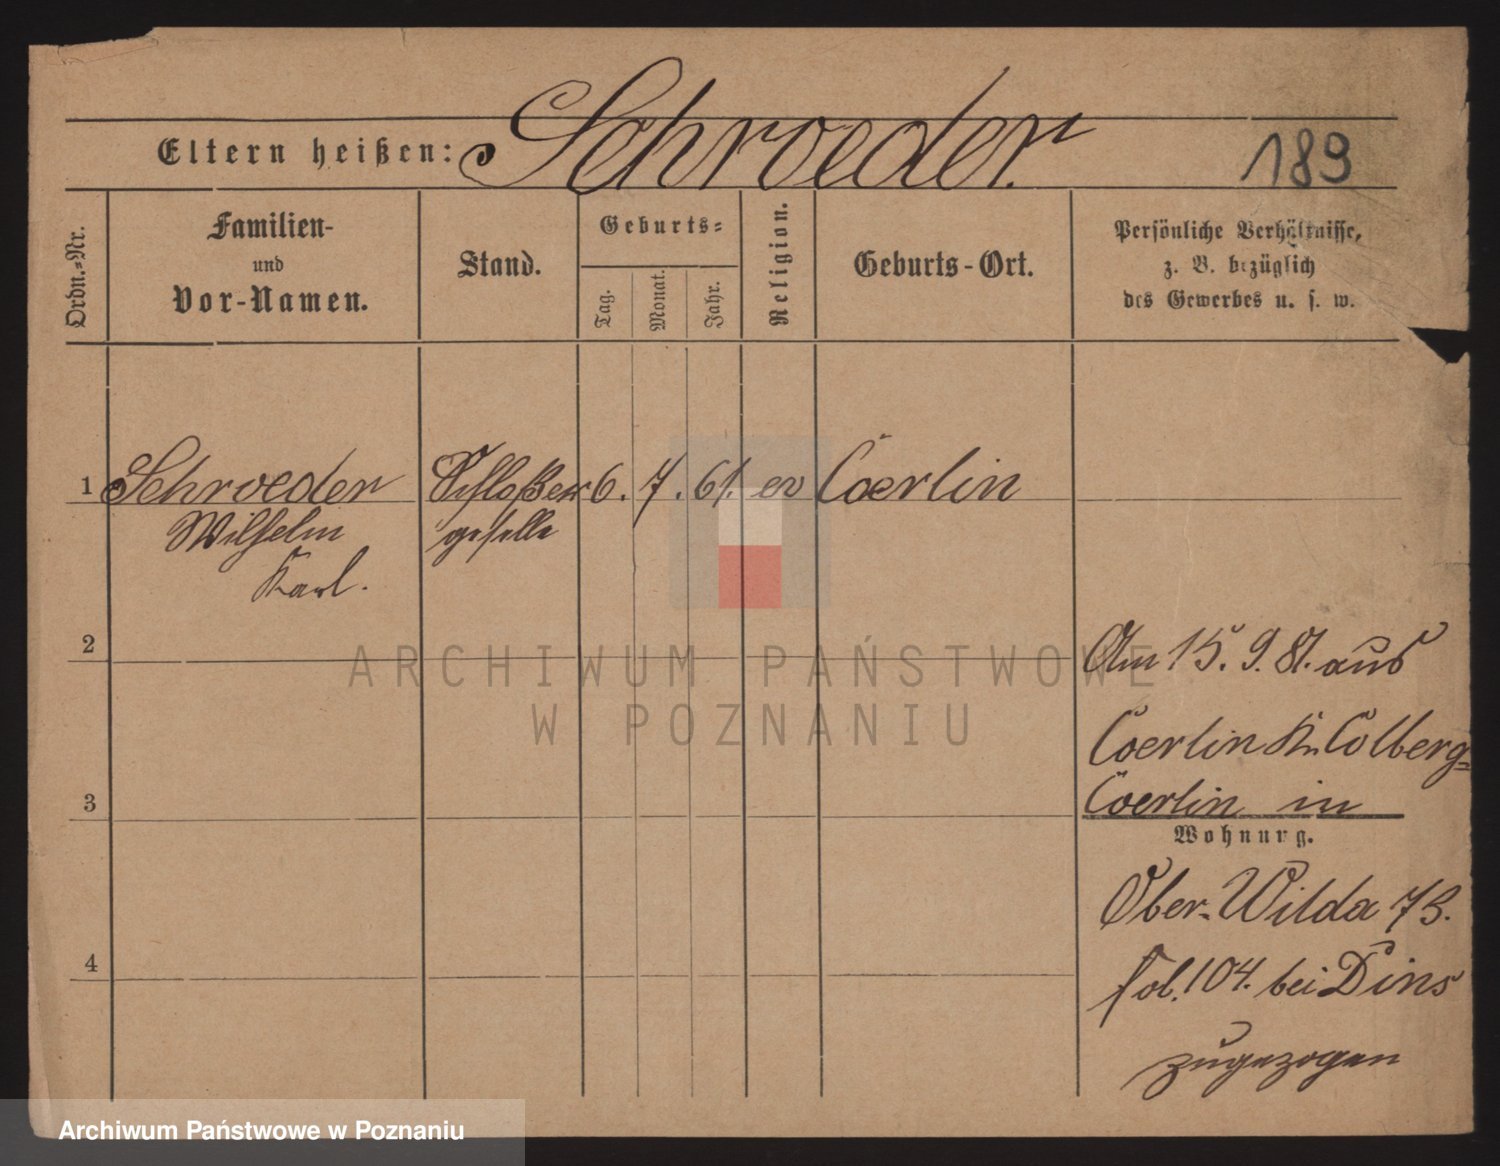 Eltern heißen: Schroeder.
189
Ordn.-Nr.
Familien-
und
Vor-Namen.
Stand.
Geburts-
Tag.
Monat.
Jahr.
Religion.
Geburts-Ort.
Persönliche Verhältnisse,
z. B. bezüglich
des Gewerbes u. s. w.
1 Schroeder Schloßer 6. 7. 61. ev Coerlin
Wilhelm geselle
Karl.
2
Am 15. 9. 81. aus
Coerlin Kr. Colberg-
3 Coerlin in
Wohnung.
Ober-Wilda 73.
4 fol. 104. bei Dins
zugezogen
ARCHIWUM PAŃSTWOWE
W POZNANIU
Archiwum Państwowe w Poznaniu